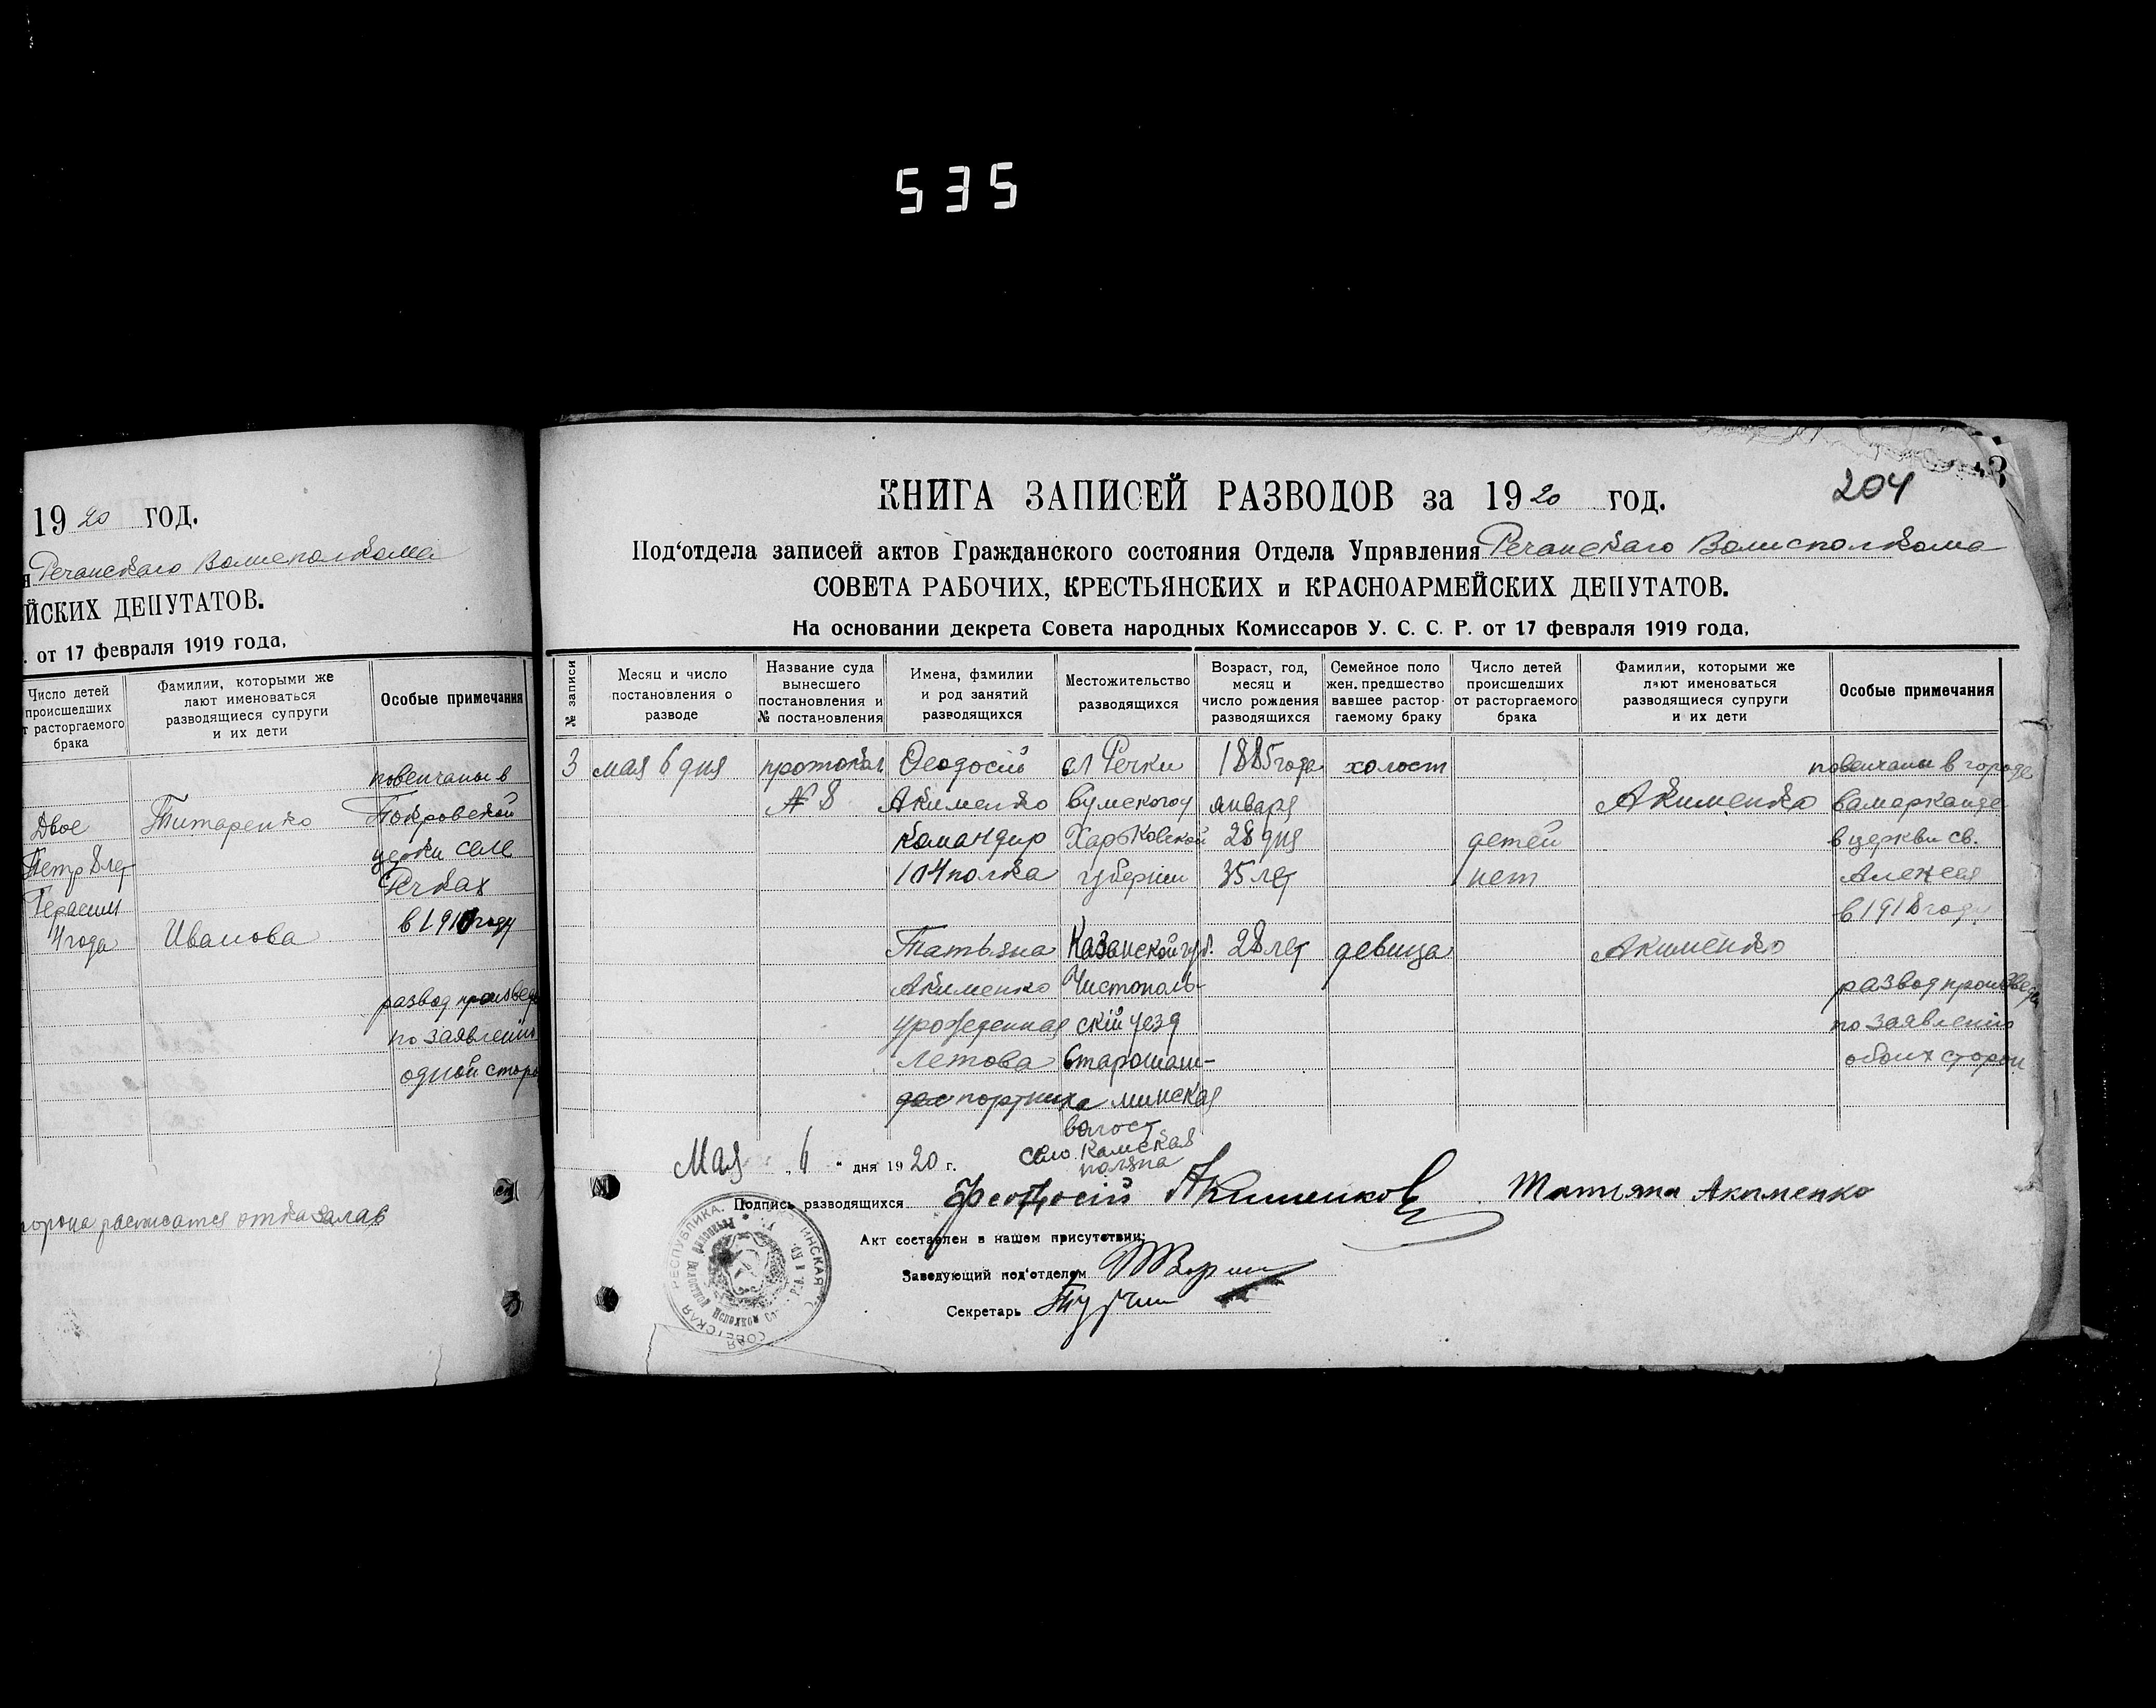 535
1920 год.
Речанскаго Волисполкома
ЙСКИХ ДЕПУТАТОВ.
. от 17 февраля 1919 года,
Число детей происшедших от расторгаемого брака
Фамилии, которыми же лают именоваться разводящиеся супруги и их дети
Особые примечания
повенчаны в
Двое Титаренко Покровской
Петр 8 лет церкви селе
Герасим Речках
4 года Иванова в 191 году
развод произведе
по заявлению
одной сторо
расписатся отказалас
204
КНИГА ЗАПИСЕЙ РАЗВОДОВ за 1920 год.
Под'отдела записей актов Гражданского состояния Отдела Управления Речанскаго Волисполкома
СОВЕТА РАБОЧИХ, КРЕСТЬЯНСКИХ и КРАСНОАРМЕЙСКИХ ДЕПУТАТОВ.
На основании декрета Совета народных Комиссаров У. С. С. Р. от 17 февраля 1919 года,
№ записи
Месяц и число постановления о разводе
Название суда вынесшего постановления и № постановления
Имена, фамилии и род занятий разводящихся
Местожительство разводящихся
Возраст, год, месяц и число рождения разводящихся
Семейное поло жен. предшество вавшее растор- гаемому браку
Число детей происшедших от расторгаемого брака
Фамилии, которыми же лают именоваться разводящиеся супруги и их дети
Особые примечания
3 мая 6 дня протокол Феодосій сл Речки 1885 года холост повенчаны в городе
№ 8 Акименко Сумского у января Акименко Самарканде
командир Харьковской 28 дня детей в церкви св.
104 полка губернии 35 лет нет Алексея
в 1918 году
Татьяна Казанской губ. 28 лет девица Акименко
Акименко Чистополь- развод произведен
урожденная скій уезд по заявлению
Летова Старошаш- обоих сторон
портниха минская
волост
село Камская
поляна
Мая „ 6 “ дня 1920 г.
Подпись разводящихся Феодосій Акименков Татияна Акименко
Акт составлен в нашем присутствии:
Заведующий под'отделом
Секретарь